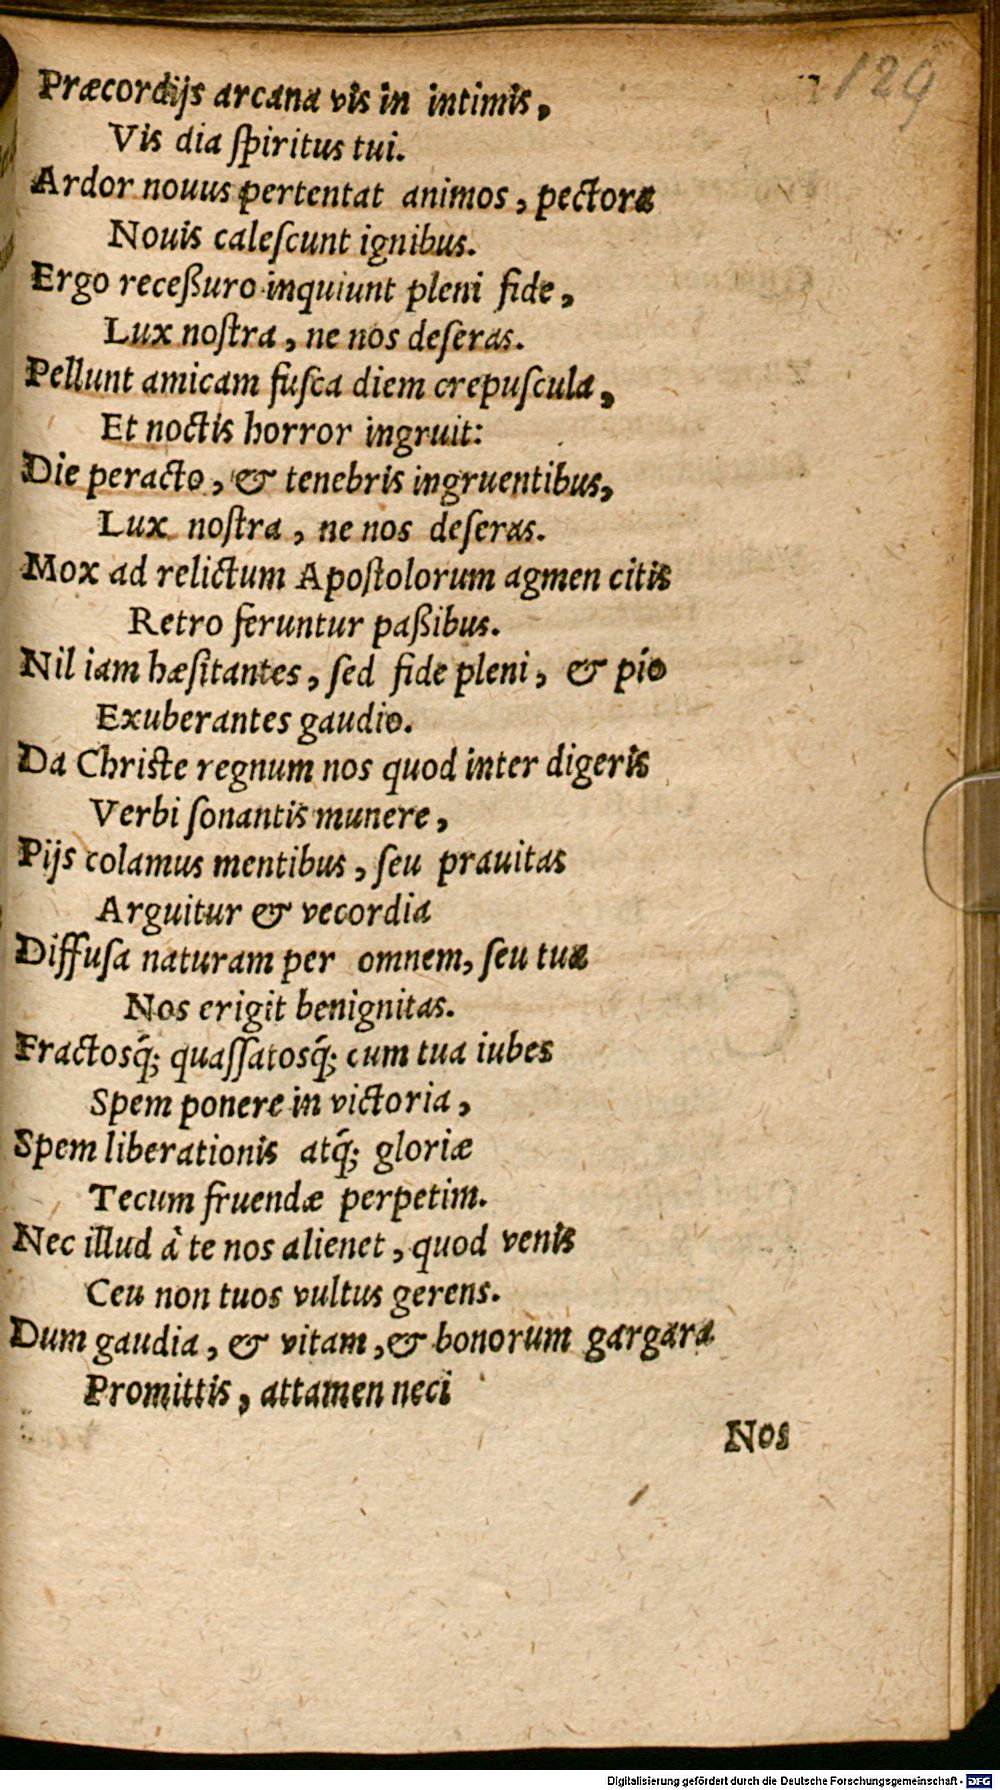 129
Præcordijs arcana vis in intimis,
Vis dia ſpiritus tui.
Ardor nouus pertentat animos, pectora
Nouis caleſcunt ignibus.
Ergo receßuro inquiunt pleni fide,
Lux noſtra, ne nos deſeras.
Pellunt amicam fuſca diem crepuſcula,
Et noctis horror ingruit:
Die peracto, & tenebris ingruentibus,
Lux noſtra, ne nos deſeras.
Mox ad relictum Apoſtolorum agmen citis
Retro feruntur paßibus.
Nil iam hæſitantes, ſed fide pleni, & pio
Exuberantes gaudio.
Da Chriſte regnum nos quod inter digeris
Verbi ſonantis munere,
Pijs colamus mentibus, ſeu prauitas
Arguitur & vecordia
Diffuſa naturam per omnem, ſeu tua
Nos erigit benignitas.
Fractosq̃; quaſſatosq̃; cum tua iubes
Spem ponere in victoria,
Spem liberationis atq̃; gloriæ
Tecum fruendæ perpetim.
Nec illud à te nos alienet, quod venis
Ceu non tuos vultus gerens.
Dum gaudia, & vitam, & bonorum gargara
Promittis, attamen neci
Nos
Digitalisierung gefördert durch die Deutsche Forschungsgemeinschaft - DFG